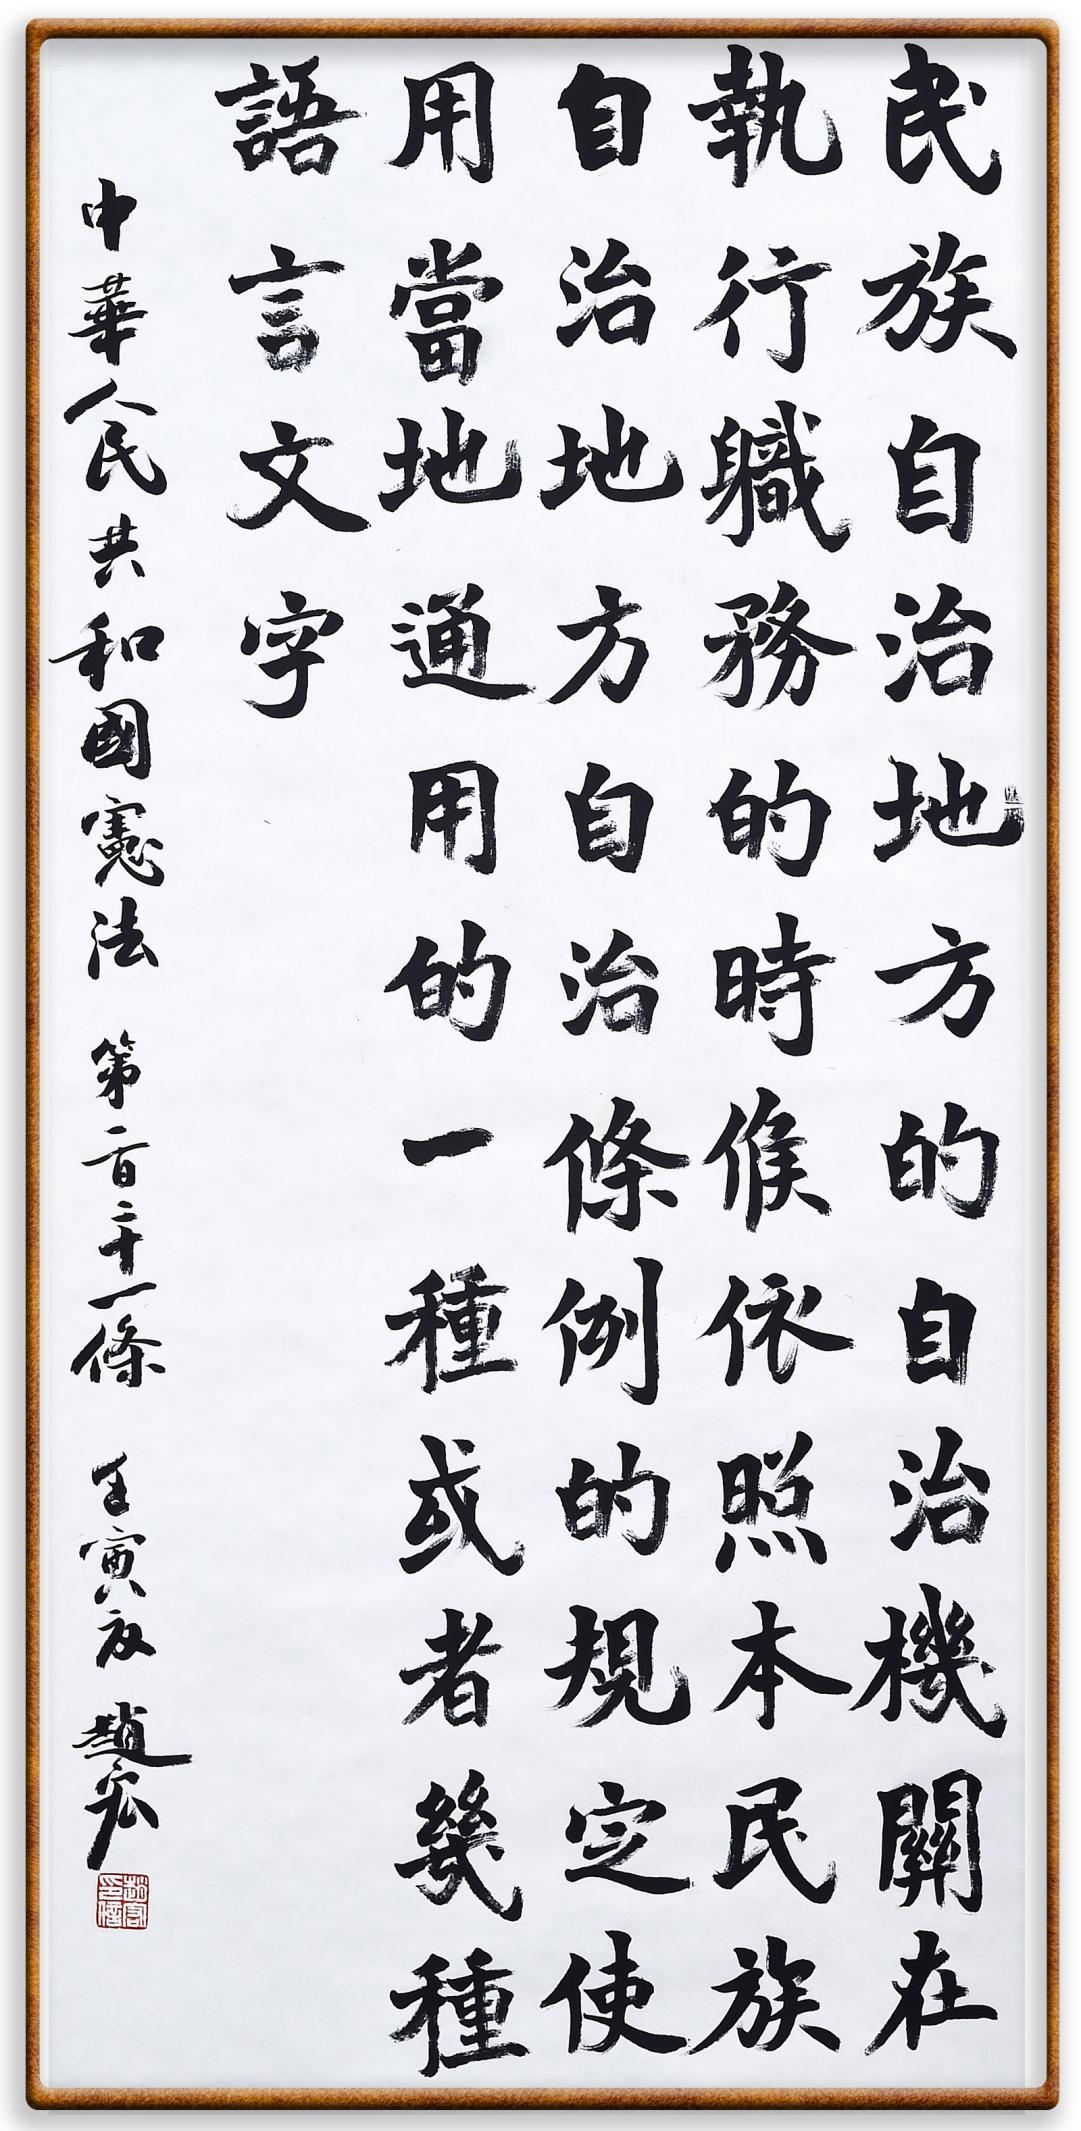 民族自治地方的自治機關在
執行軄務的時候依照本民族
自治地方自治條例的規定使
用當地通用的一種或者幾種
語言文字
中華人民共和國憲法 第一百二十一條 壬寅 趙宏